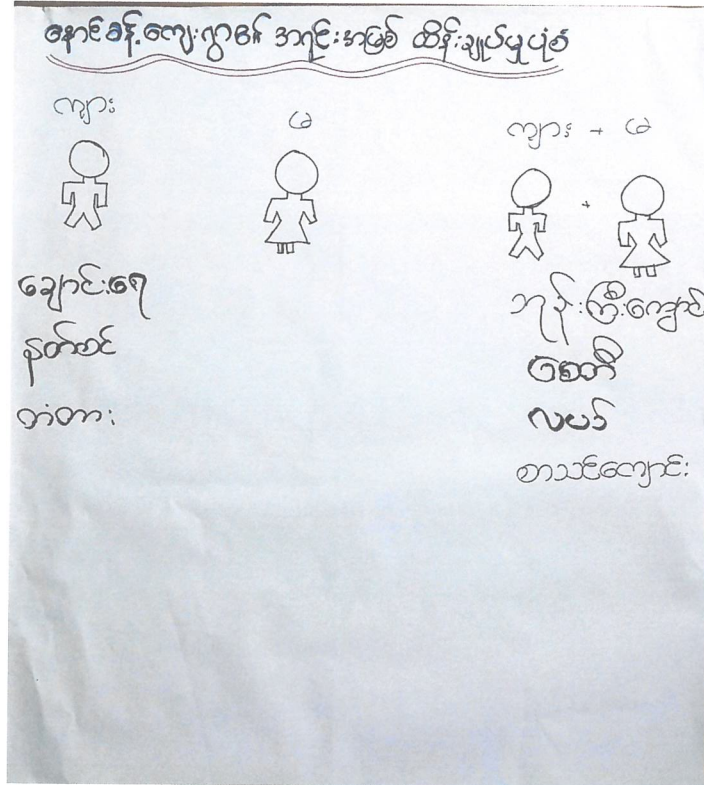 နောင်ခန့်ကျေးရွာ၏ အရင်းအမြစ် ထိန်းချုပ်မှုပုံစံ
ကျား
မ
ကျား + မ
+
ချောင်းရေ
နတ်စင်
တံတား
ဘုန်းကြီးကျောင်း
စေတီ
လမ်း
စာသင်ကျောင်း